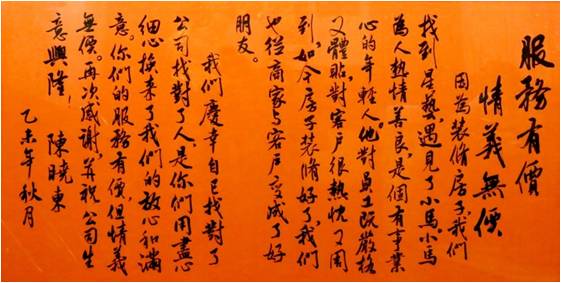 服務有價
情義無價
因為裝修房子我们
找到星藝,遇見了小馬,小馬
為人熱情善良,是個有事業
心的年輕人。他對員工既嚴格
又體貼,對客户很熱忱又周
到,如今房子裝修好了,我們
也從商家与客户变成了好
朋友。
我們慶幸自己找對了
公司找對了人,是你們用盡心
細心换来了我們的放心和滿
意。你們的服務有價,但情義
無價。再次感谢,并祝公司生
意興隆!
陳曉東
乙未年秋月